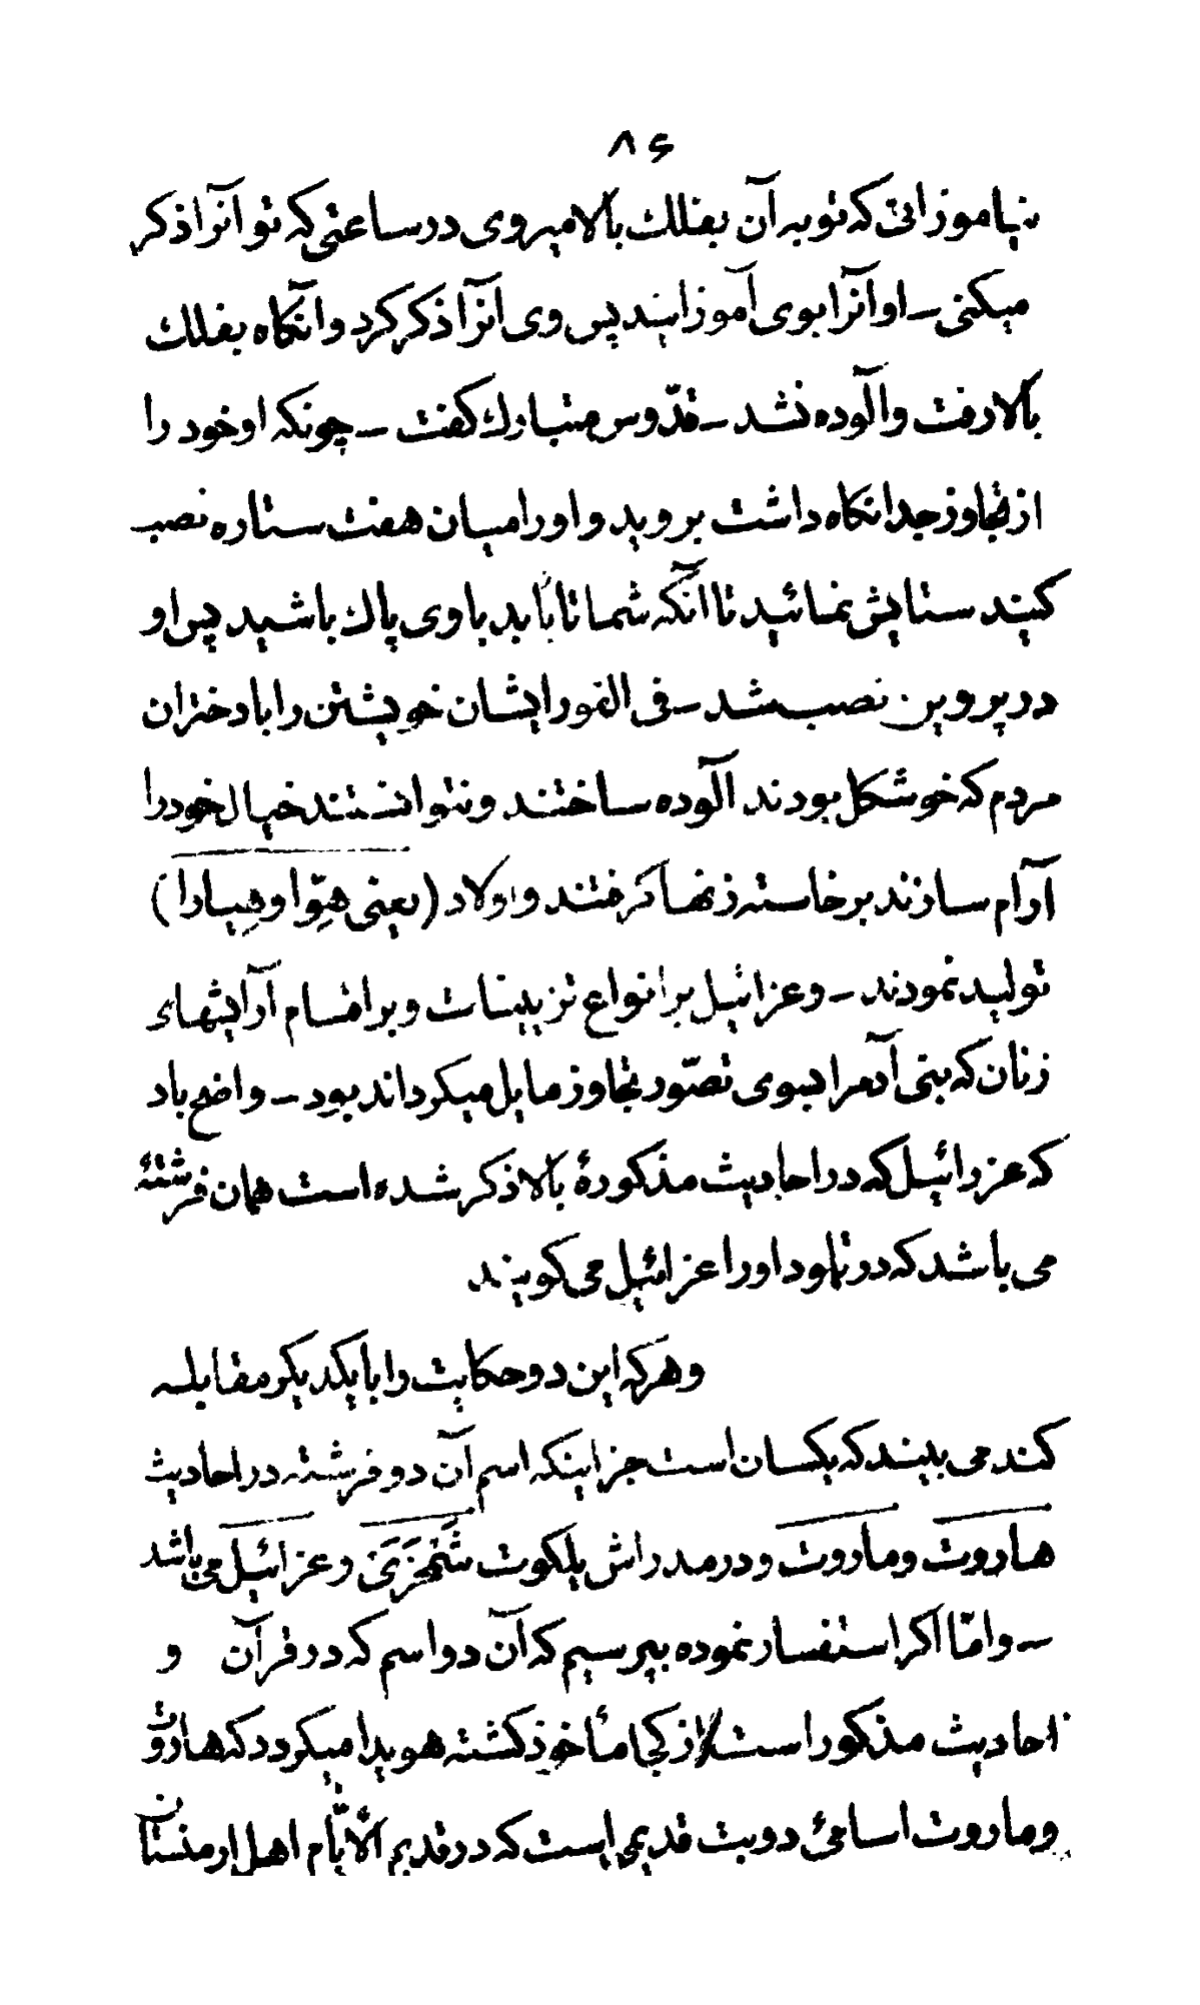 ۸۶
نیاموزانی که تو به آن بفلك بالا میروی در ساعتی که تو آنرا ذکر
میکنی ــ او آنرا بوی آموزانید پس وی آنرا ذکر کرد و آنگاه بفلك
بالا رفت و آلوده نشد ــ قدّوس متبارك گفت ــ چونکه او خود را
از تجاوز جدا نگاه داشت بروید و او را میان هفت ستاره نصب
کنید ستایش نمائید تا آنکه شما تا باید با وی پاك باشید پس او
در پروین نصب شد ــ فی الفور ایشان خویشتن را با دختران
مردم که خوشکل بودند آلوده ساختند و نتوانستند خیال خود را
آرام سازند برخاسته زنها گرفتند و اولاد (یعنی هِوّا و هِیا را)
تولید نمودند ــ و عزائیل بر انواع تزیینات و بر اقسام آرایشهای
زنان که بنی آدم را بسوی تصوّر تجاوز مایل میکرداند بود ــ واضح باد
که عزرائیل که در احادیث مذکورهٔ بالا ذکر شده است همان فرشتهٔ
می باشد که در تلمود او را عزائیل می کویند
و هر که این دو حکایت را با یکدیکر مقابله
کند می بیند که یکسان است جز اینکه اسم آن دو فرشته در احادیث
هاروت و ماروت و در مدراش یلکوت شَمْحَزَیَ و عزائیل می باشد
ــ و امّا اکر استفسار نموده بپرسیم که آن دو اسم که در قرآن و
احادیث مذکور است از کجا مأخوذ کشته هویدا میکردد که هاروت
و ماروت اسامئ دو بت قدیمی است که در قدیم الأیّام اهل ارمنستان